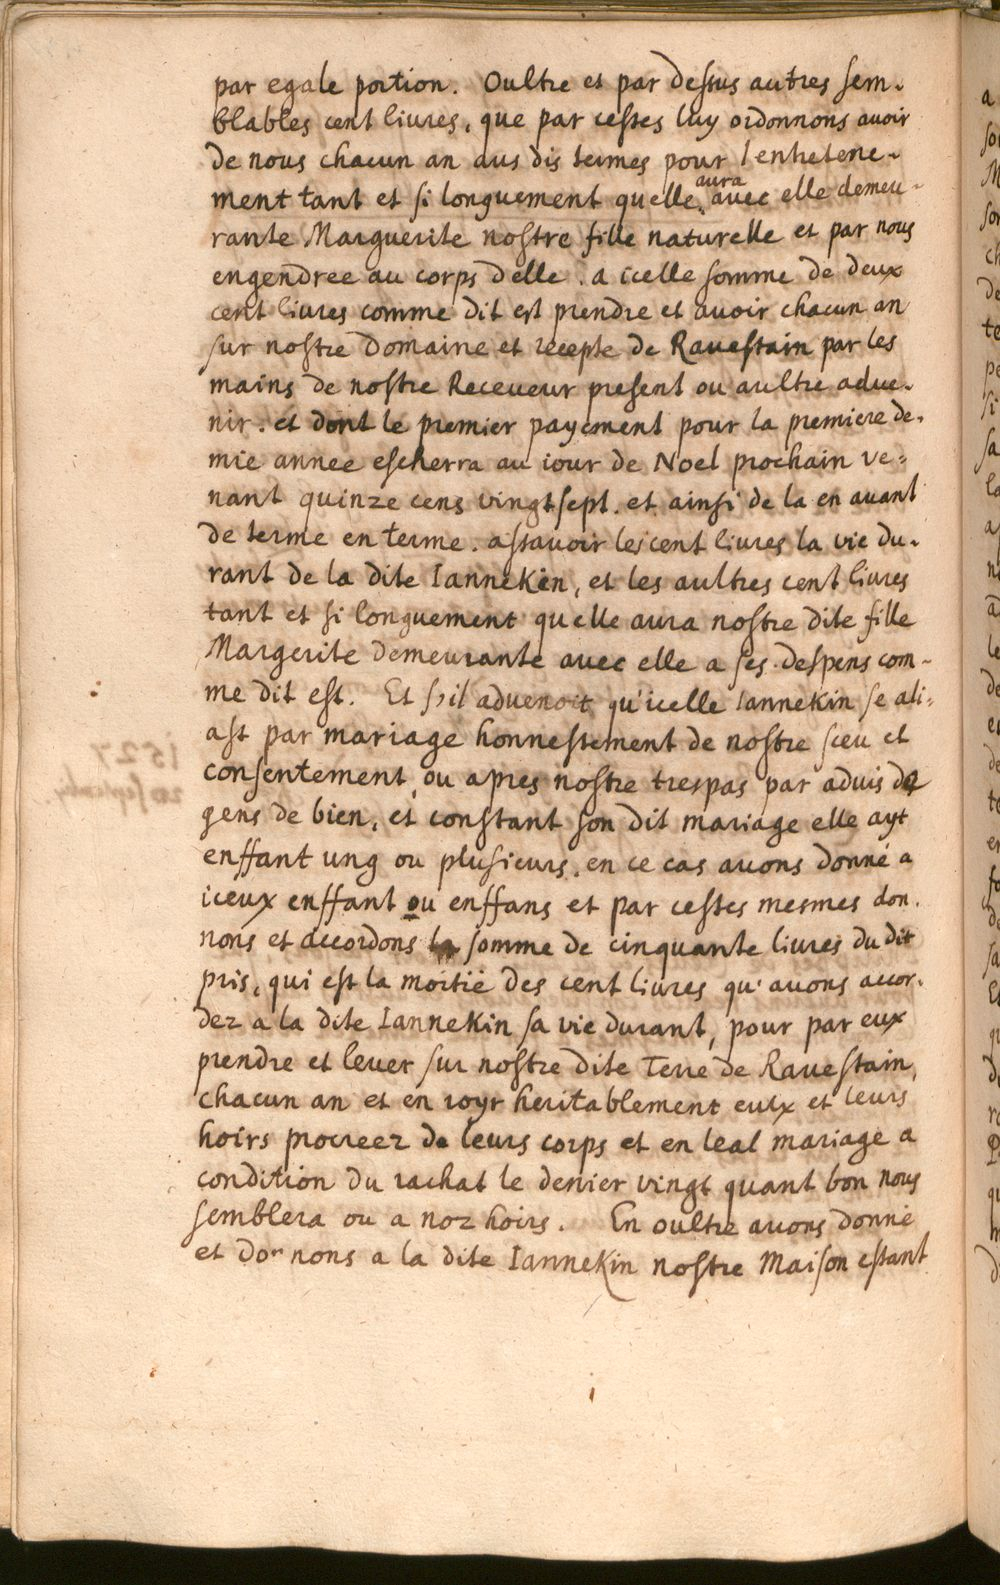 par egale portion. Oultre et par dessus autres sem-
blables cent livres, que par cestes luy ordonnons avoir
de nous chacun an aus dis termes pour lentretene-
ment tant et si longuement quelle aura avec elle demeu-
rante Marguerite nostre fille naturelle et par nous
engendree au corps delle. a icelle somme de deux
cent livres comme dit est prendre et avoir chacun an
sur nostre Domaine et recepte de Ravestain par les
mains de nostre Receveur present ou aultre adve-
nir. et dont le premier payement pour la premiere de-
mie annee escherra au iour de Noel prochain ve=
nant quinze cens vingt sept. et ainsi de la en avant
de terme en terme. assavoir les cent livres la vie du-
rant de la dite Ianneken, et les aultres cent livres
tant et si longuement quelle aura nostre dite fille
Margerite demeurante avec elle a ses despens com-
me dit est. Et s'il advenoit qu'icelle Iannekin se ali=
ast par mariage honnestement de nostre sceu et
consentement, ou apres nostre trespas par advis de
gens de bien, et constant son dit mariage elle ayt
enffant ung ou plusieurs, en ce cas avons donné a
iceux enffant ou enffans et par cestes mesmes don-
nons et accordons la somme de cinquante livres du dit
pris, qui est la moitié des cent livres qu'avons accor-
dez a la dite Iannekin sa vie durant, pour par eux
prendre et lever sur nostre dite Terre de Ravestain,
chacun an et en ioyr heritablement eulx et leurs
hoirs procreez de leurs corps et en leal mariage a
condition du rachat le denier vingt quant bon nous
semblera ou a noz hoirs. En oultre avons donné
et donnons a la dite Iannekin nostre Maison estant